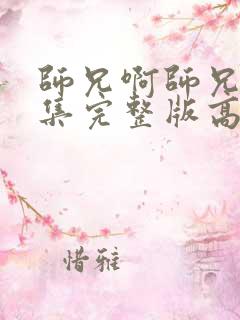 師兄啊師兄
集完整版高
惜雅